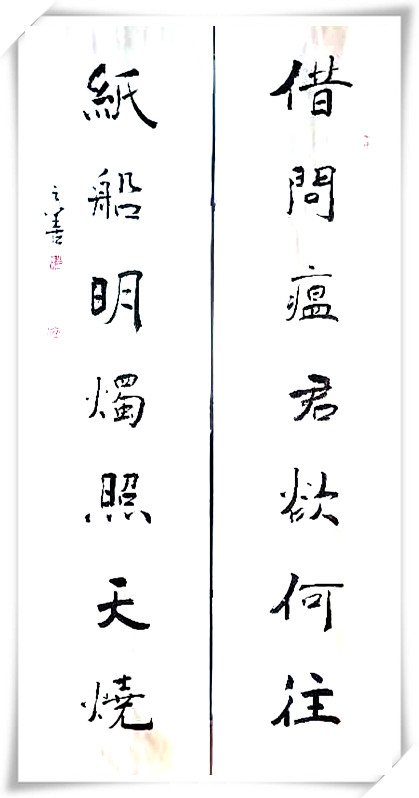 借問瘟君欲何往
紙船明燭照天燒
之善